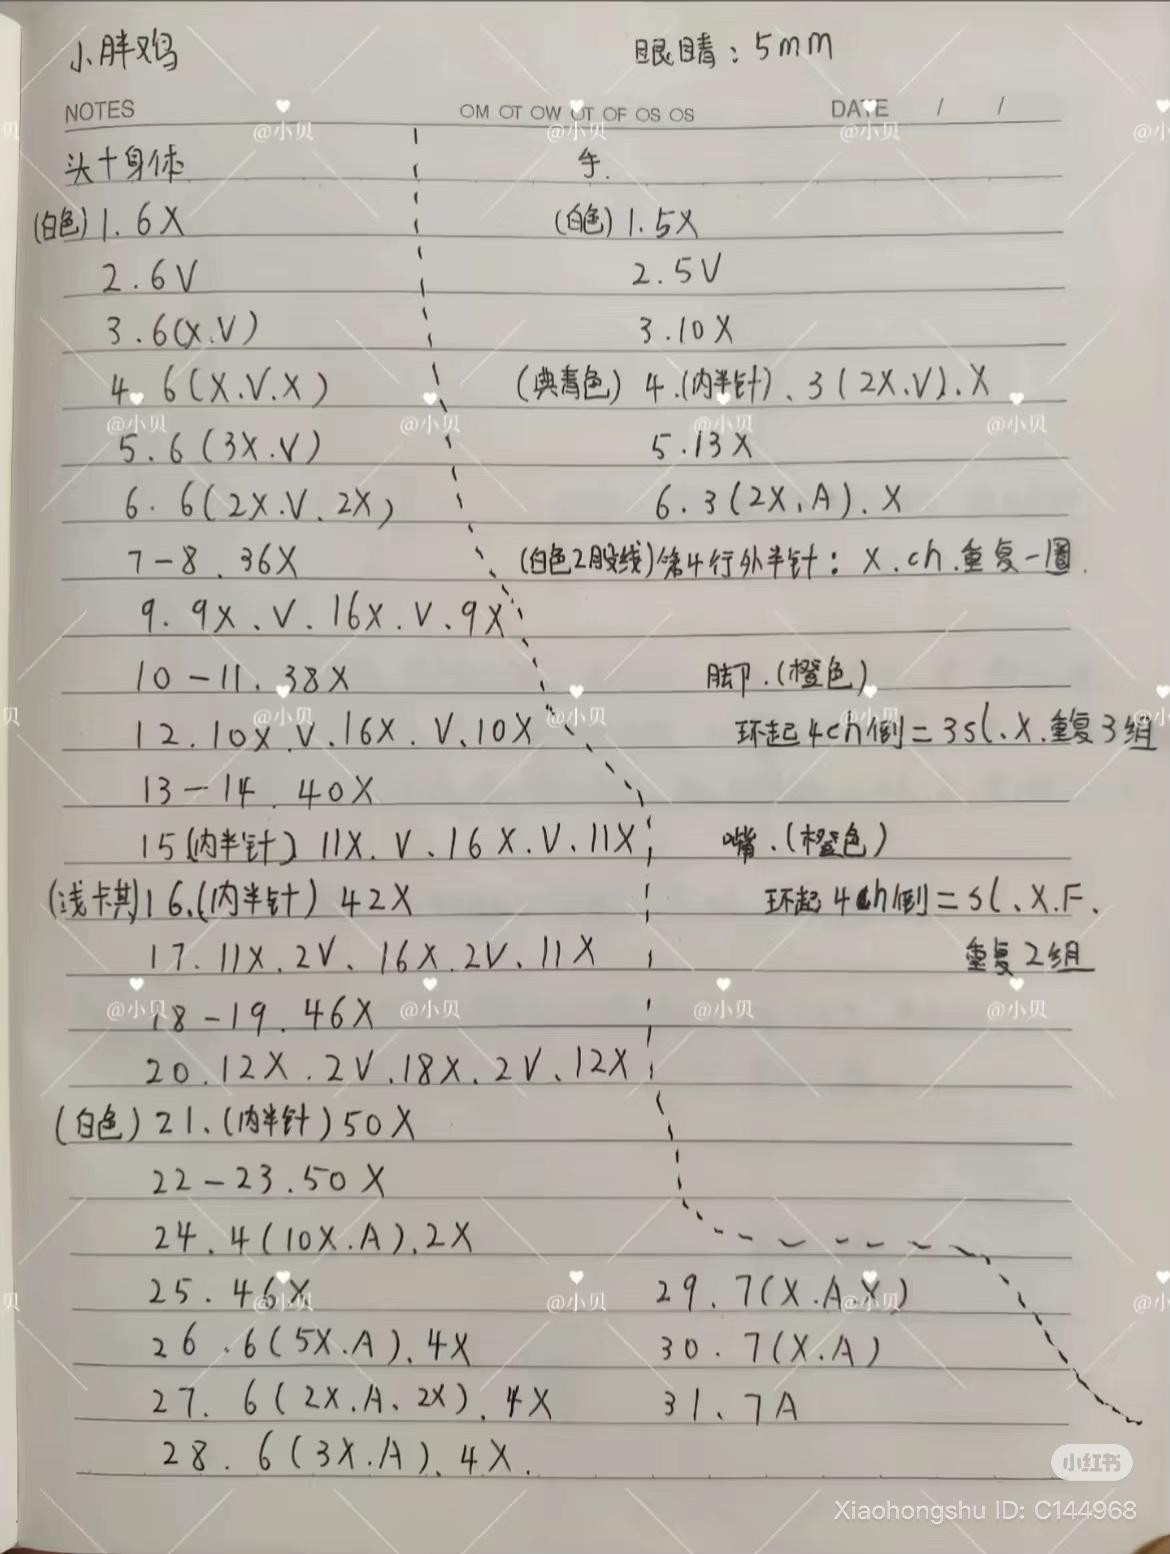 小胖鸡
眼睛：5mm
NOTES
OM OT OW OT OF OS OS
DATE / /
头+身体
(白色) 1. 6X
2. 6V
3. 6(X.V)
4. 6(X.V.X)
5. 6(3X.V)
6. 6(2X.V、2X)
7-8. 36X
9. 9X、V、16X.V、9X
10-11. 38X
12. 10X.V.16X.V、10X
13-14. 40X
15(内半针) 11X.V、16X.V、11X
(浅卡其) 16.(内半针) 42X
17. 11X.2V、16X.2V、11X
18-19. 46X
20. 12X.2V.18X.2V、12X
(白色) 21、(内半针) 50X
22-23. 50X
24. 4(10X.A).2X
25. 46X
26. 6(5X.A)、4X
27. 6(2X.A、2X)、4X
28. 6(3X.A)、4X.
29. 7(X.A.X)
30. 7(X.A)
31、7A
手.
(白色) 1. 5X
2. 5V
3. 10X
(典青色) 4.(内半针)、3(2X.V).X
5. 13X
6. 3(2X.A)、X
(白色2股线)第4行外半针：X.ch.重复一圈.
脚.(橙色)
环起4ch倒=3sl、X.重复3组
嘴.(橙色)
环起4ch倒=sl、X.F、
重复2组
@小贝
小红书
Xiaohongshu ID: C144968